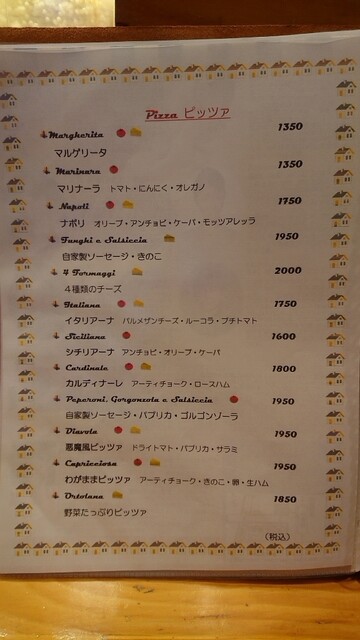 Pizza ピッツァ
Margherita 1350
マルゲリータ
Marinara 1350
マリナーラ トマト・にんにく・オレガノ
Napoli 1750
ナポリ オリーブ・アンチョビ・ケーパ・モッツアレッラ
Funghi e Salsiccia 1950
自家製ソーセージ・きのこ
4 Formaggi 2000
４種類のチーズ
Italiana 1750
イタリアーナ パルメザンチーズ・ルーコラ・プチトマト
Siciliana 1600
シチリアーナ アンチョビ・オリーブ・ケーパ
Cardinale 1800
カルディナーレ アーティチョーク・ロースハム
Peperoni, Gorgonzola e Salsiccia 1950
自家製ソーセージ・パプリカ・ゴルゴンゾーラ
Diavola 1950
悪魔風ピッツァ ドライトマト・パプリカ・サラミ
Capricciosa 1950
わがままピッツァ アーティチョーク・きのこ・卵・生ハム
Ortolana 1850
野菜たっぷりピッツァ
(税込)